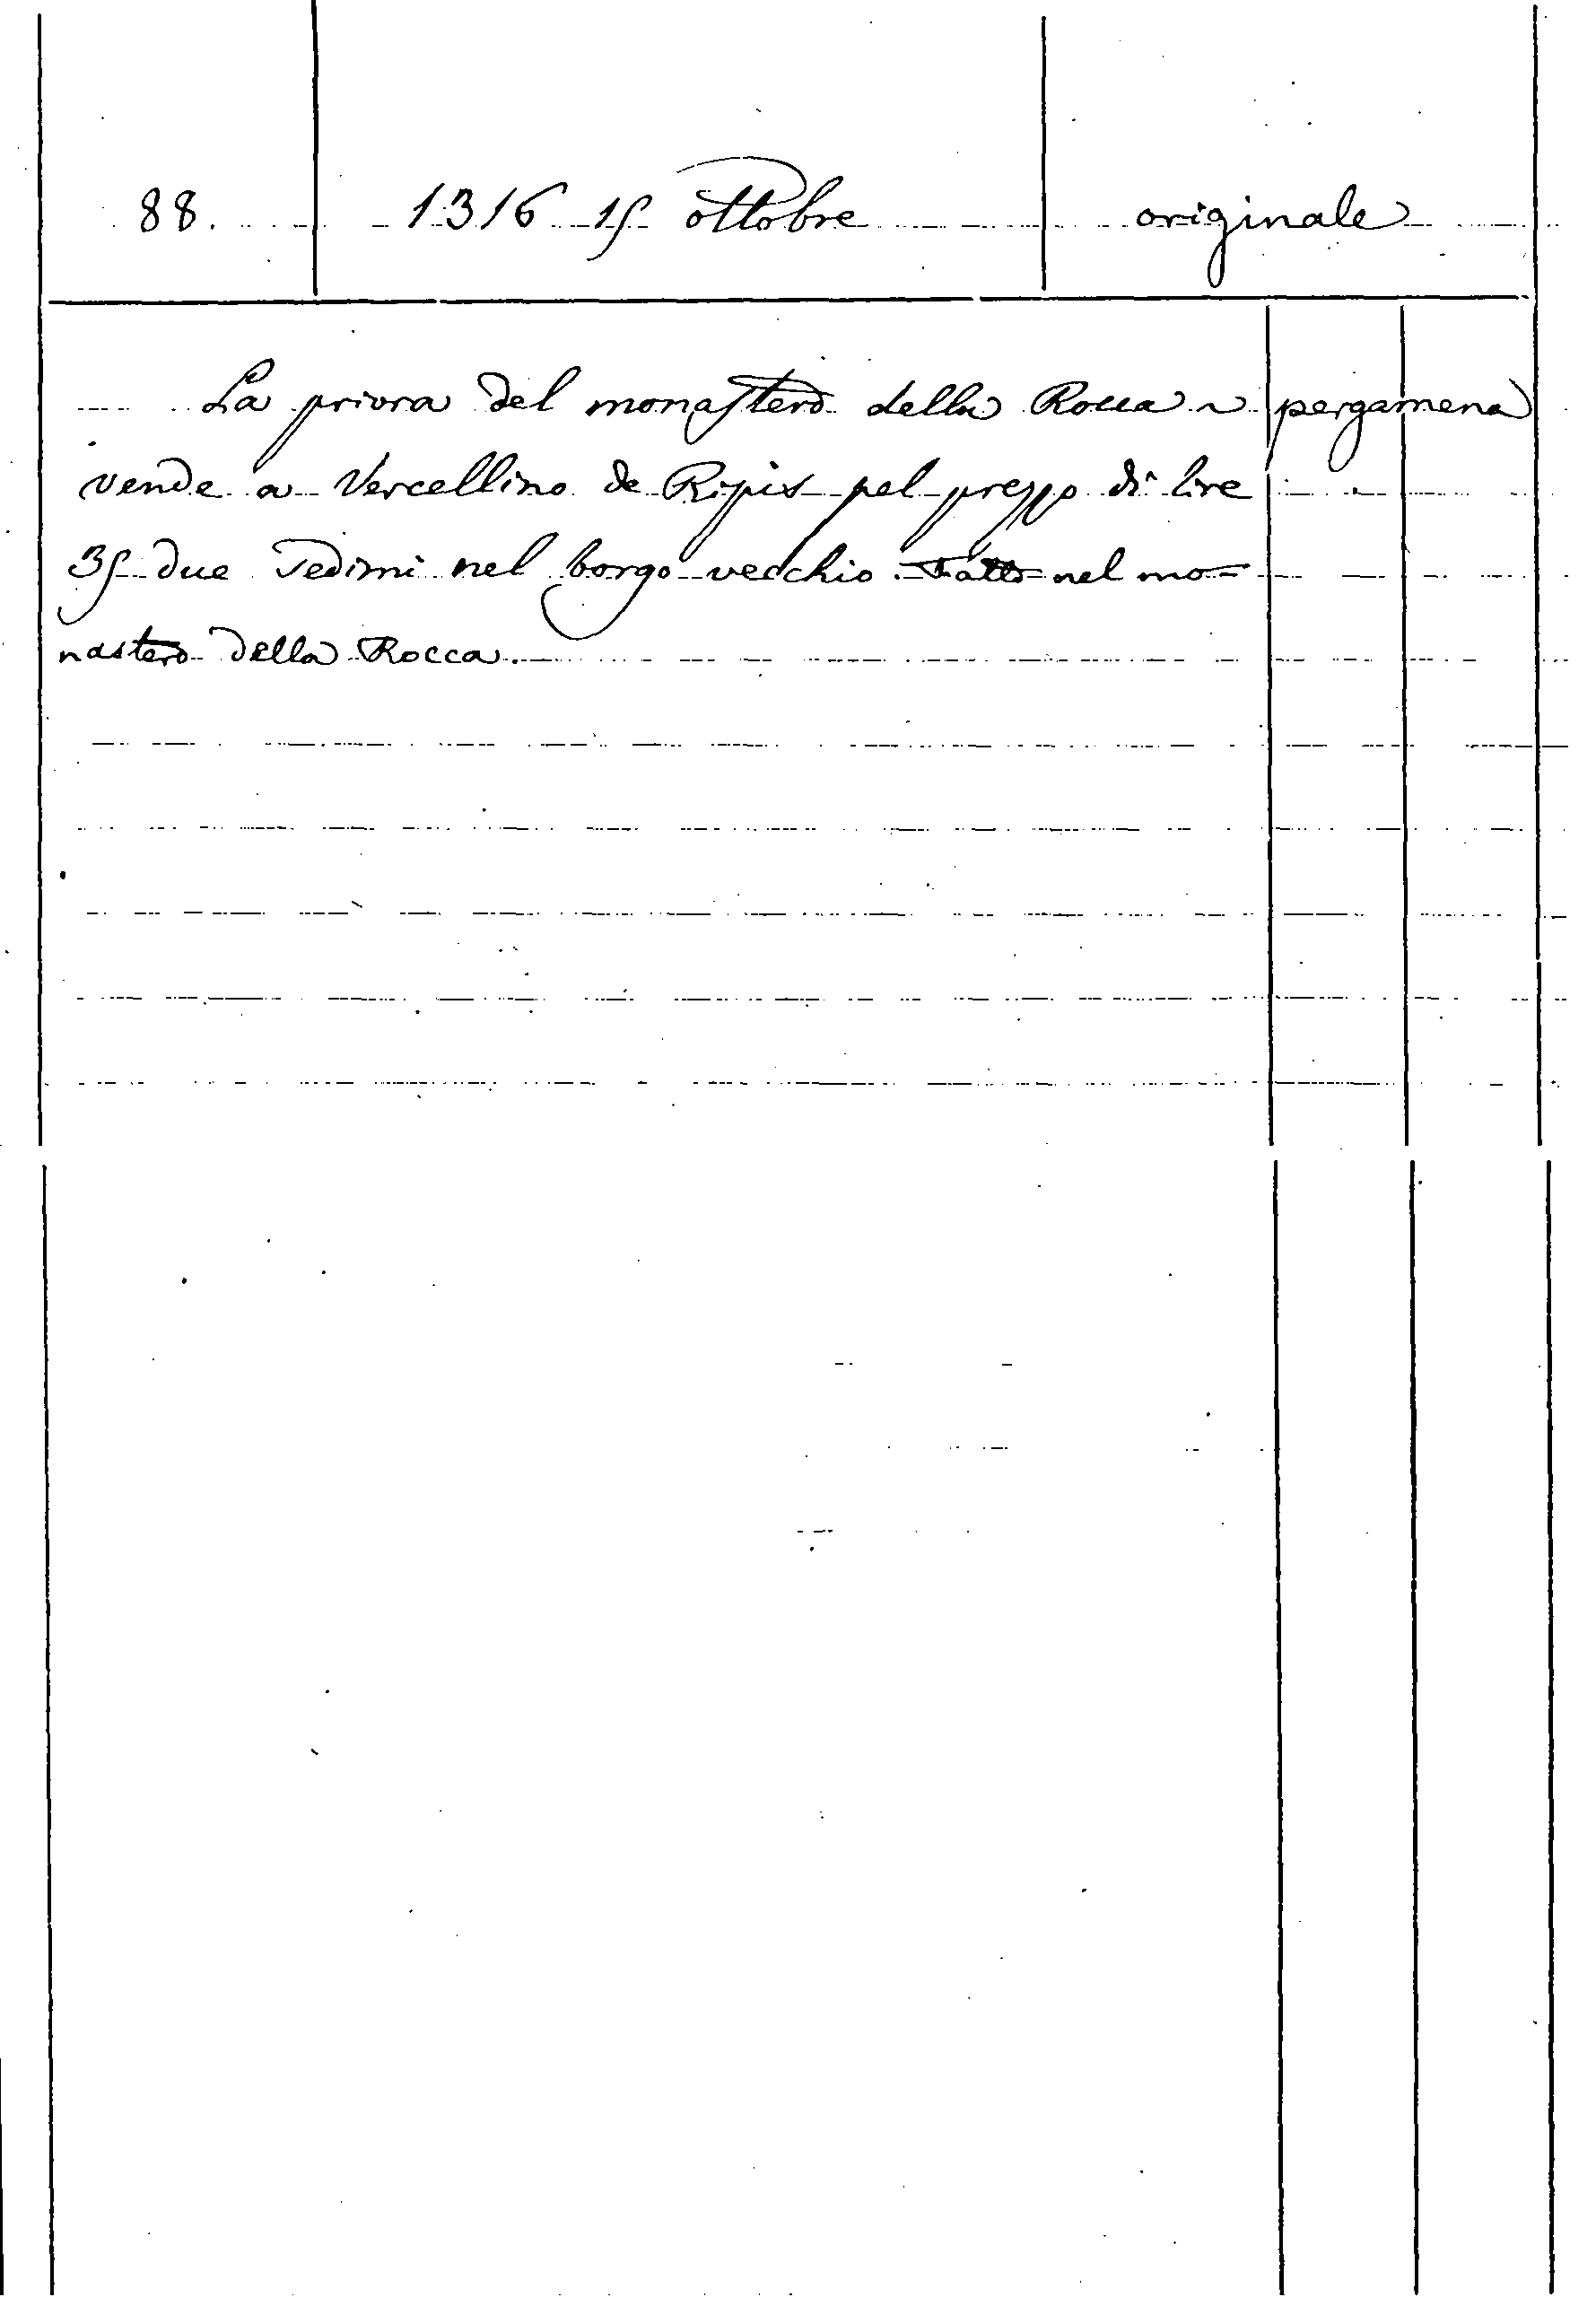 88. 1316 15 ottobre originale
La priora del monastero della Rocca ~ pergamena
vende a Vercellino de Ripis pel prezzo di lire
35 due sedimi nel borgo vecchio. Fatto nel mo=
nastero della Rocca.